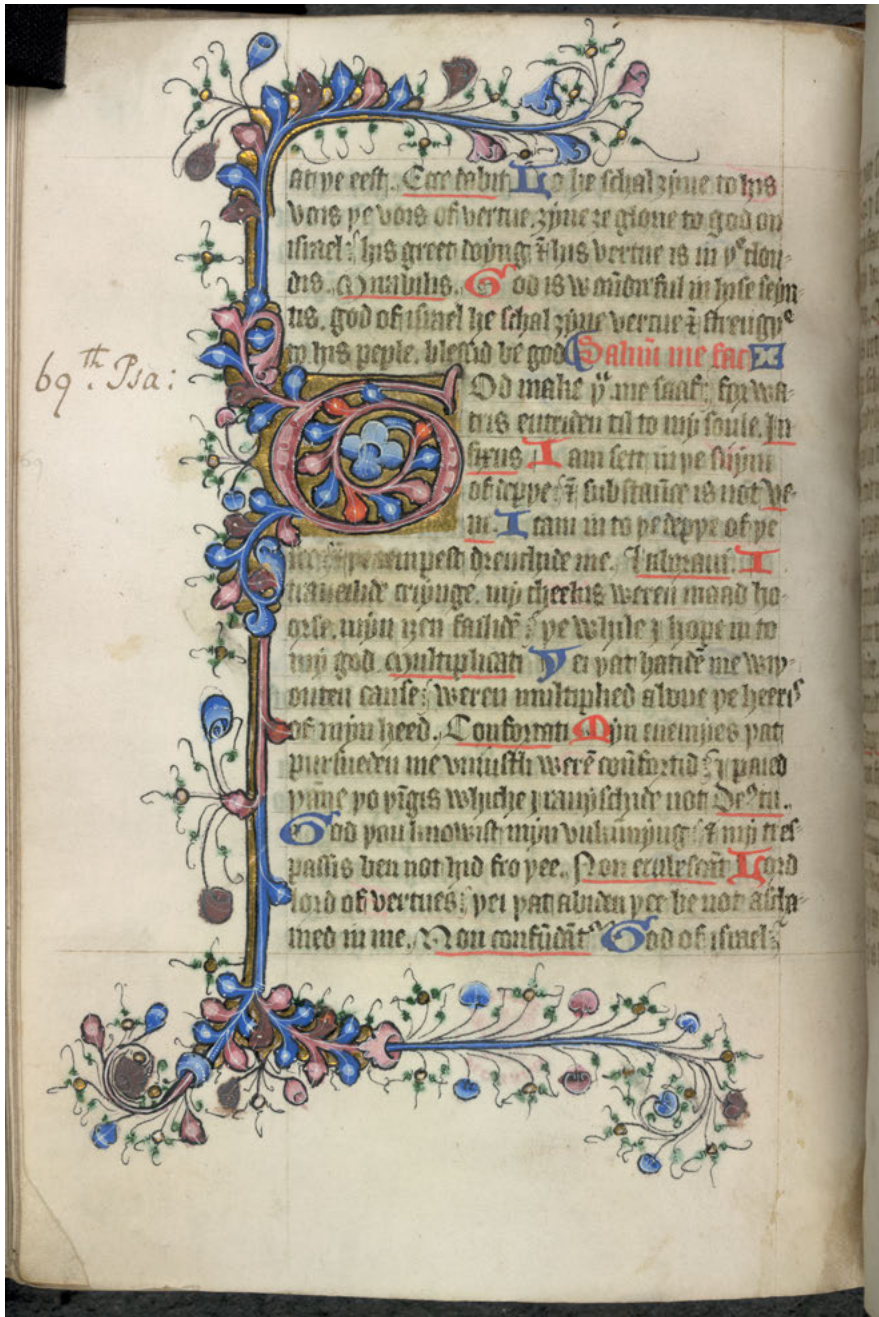 at þe eest. Ecce dabit Lo he schal ȝyue to his
vois þe vois of vertue, ȝyue ȝe glorie to god on
israel: his greet doyng ⁊ his vertue is in þe clou-
dis. Mirabilis. God is wonderful in hise seyn-
tis, god of israel he schal ȝyue vertue ⁊ strengþe
to his peple. blessid be god Saluū me fac
69th. Psa:
God make þu me saaf: for wa-
tris entriden til to my soule. In
fixus I am sett in þe slijm
of deppe: ⁊ substaūce is not Ve-
ni. I cam in to þe deppe of þe
tempest drenchide me. Laboraui. I
traueilide criynge, my cheekis weren maad ho-
orse, myn yȝen failidē: þe while y hope in to
my god Multiplicati Þei þat hatidē me wiþ-
outen cause: weren multiplied aboue þe heeris
of myn heed. Confortati Myn enemyes þat
pursueden me vniustli werē coūfortid: y paied
þāne þo þīgis whiche y rauyschide not Deꝰ tu.
God þou knowist myn vnkunnyng: ⁊ my tres-
passis ben not hid fro þee. Non erubescāt Lord
lord of vertues: þei þat abiden þee be not ascha-
med in me. Non confūdāt God of israel: